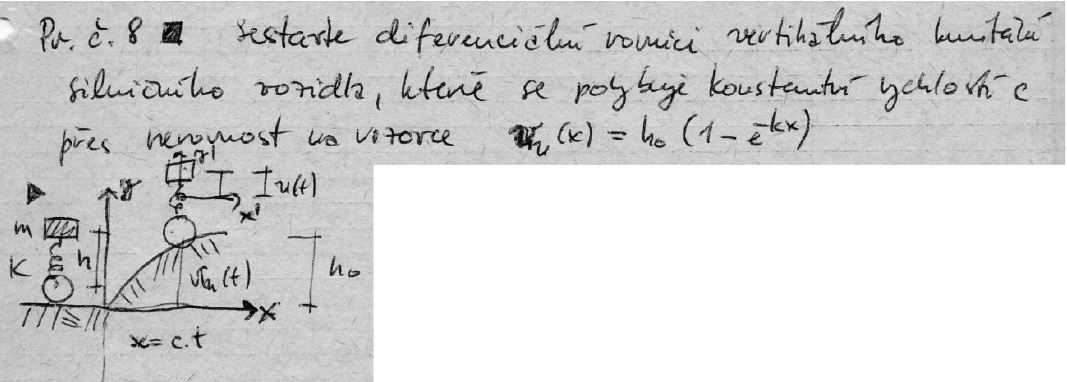 Př. č. 8 sestavte diferenciální rovnici vertikálního kmitání
silničního vozidla, které se pohybuje konstantní rychlostí c
přes nerovnost na vozovce (x) = h₀ (1 - e^-kx)
y
u(t)
x'
m
K
h
h(t)
h₀
x
x = c.t